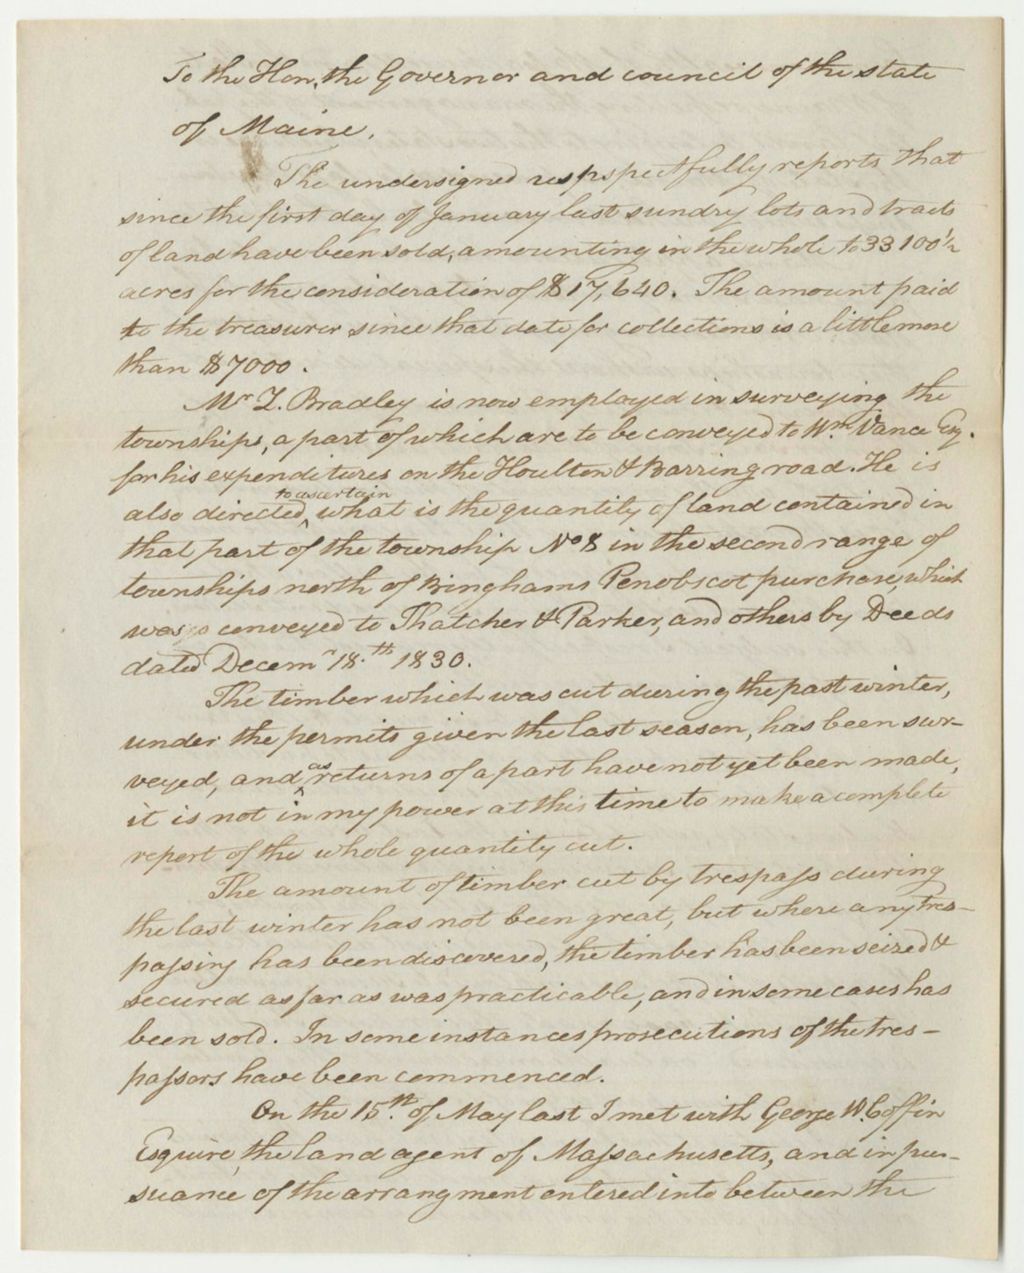 To the Hon. the Governor and council of the state
of Maine.
The undersigned respspectfully reports that
since the first day of January last sundry lots and tracts
of land have been sold, amounting in the whole to 33100½
acres for the consideration of $17,640. The amount paid
to the treasurer since that date for collections is a little more
than $7000.
Mr Z. Bradley is now employed in surveying the
townships, a part of which are to be conveyed to Wm Vance Esq.
for his expenditures on the Houlton & Barring road. He is
to ascertain
also directed, what is the quantity of land contained in
that part of the township No 8 in the second range of
townships north of Binghams Penobscot purchase, which
was conveyed to Thatcher & Parker, and others by Deeds
dated Decemr 18.th 1830.
The timber which was cut during the past winter,
under the permits given the last season, has been sur-
veyed, and as returns of a part have not yet been made,
it is not in my power at this time to make a complete
report of the whole quantity cut.
The amount of timber cut by trespass during
the last winter has not been great, but where any tres-
passing has been discovered, the timber has been seized &
secured as far as was practicable, and in some cases has
been sold. In some instances prosecutions of the tres-
passors have been commenced.
On the 15.th of May last I met with George W. Coffin
Esquire, the land agent of Massachusetts, and in pur-
suance of the arrangment entered into between the